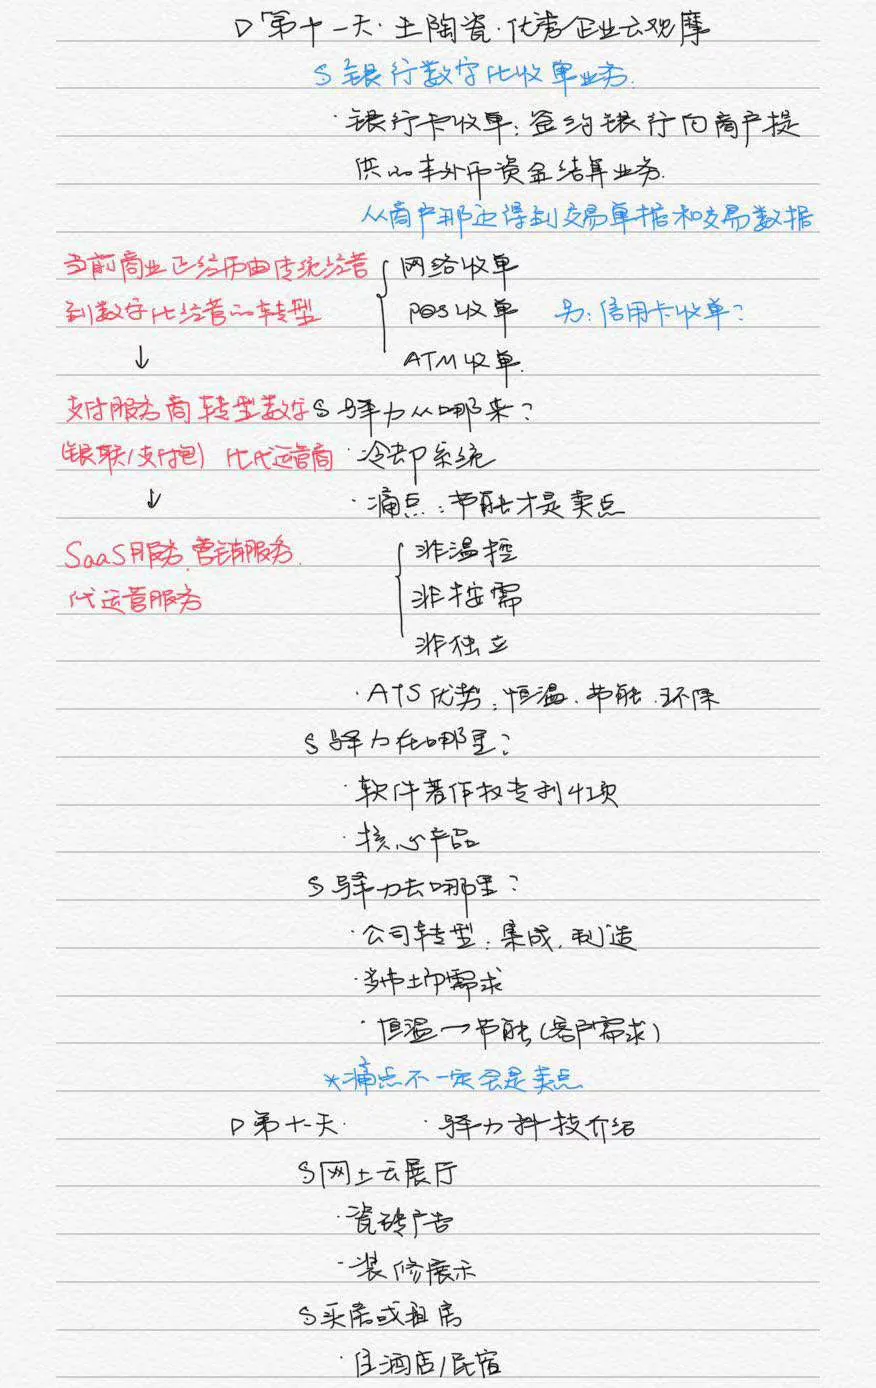 D 第十一天·王陶瓷·优秀企业云观摩
S 银行数字化收单业务.
·银行卡收单:签约银行向商户提
供的本外币资金结算业务.
从商户那边得到交易单据和交易数据
当前商业正经历由传统经营
到数字化经营的转型
↓
支付服务商转型数字
(银联/支付包) 化代运营商
↓
SaaS服务.营销服务.
代运营服务
网络收单
POS收单 另:信用卡收单?
ATM收单.
S 驿力从哪来?
·冷却系统
·痛点:节能才是卖点
非温控
非按需
非独立
·ATS优势:恒温.节能.环保
S 驿力在哪里?
·软件著作权专利41项
·核心产品
S 驿力去哪里?
·公司转型:集成.制造
·客户需求
·恒温→节能(客户需求)
*痛点不一定会是卖点
D 第十一天· ·驿力科技介绍
S 网上云展厅
·瓷砖广告
·装修展示
S 买房或租房
·住酒店/民宿